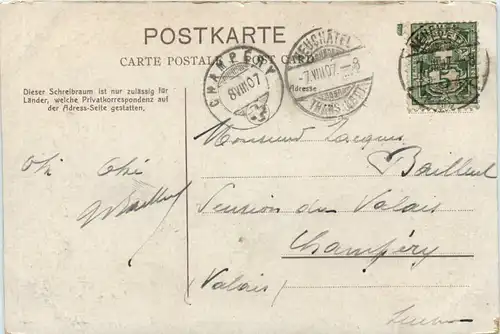 POSTKARTE
CARTE POSTALE
Dieser Schreibraum ist nur zulässig für
Länder, welche Privatkorrespondenz auf
der Adress-Seite gestatten.
Adresse
CHAMPÉRY
8 VIII 07
NEUCHÂTEL
-7.VIII.07.-8
Monsieur Jacques
Bailleul
Pension du Valais
Champéry
(Valais)